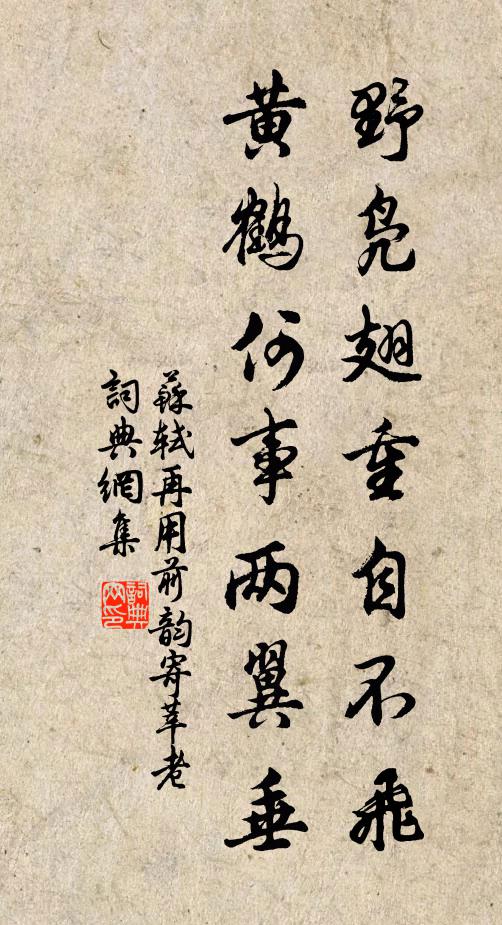 野鳧翅重自不飛
黃鶴何事两翼垂
蘇軾再用前韵寄莘老
詞典網集
詞典網印